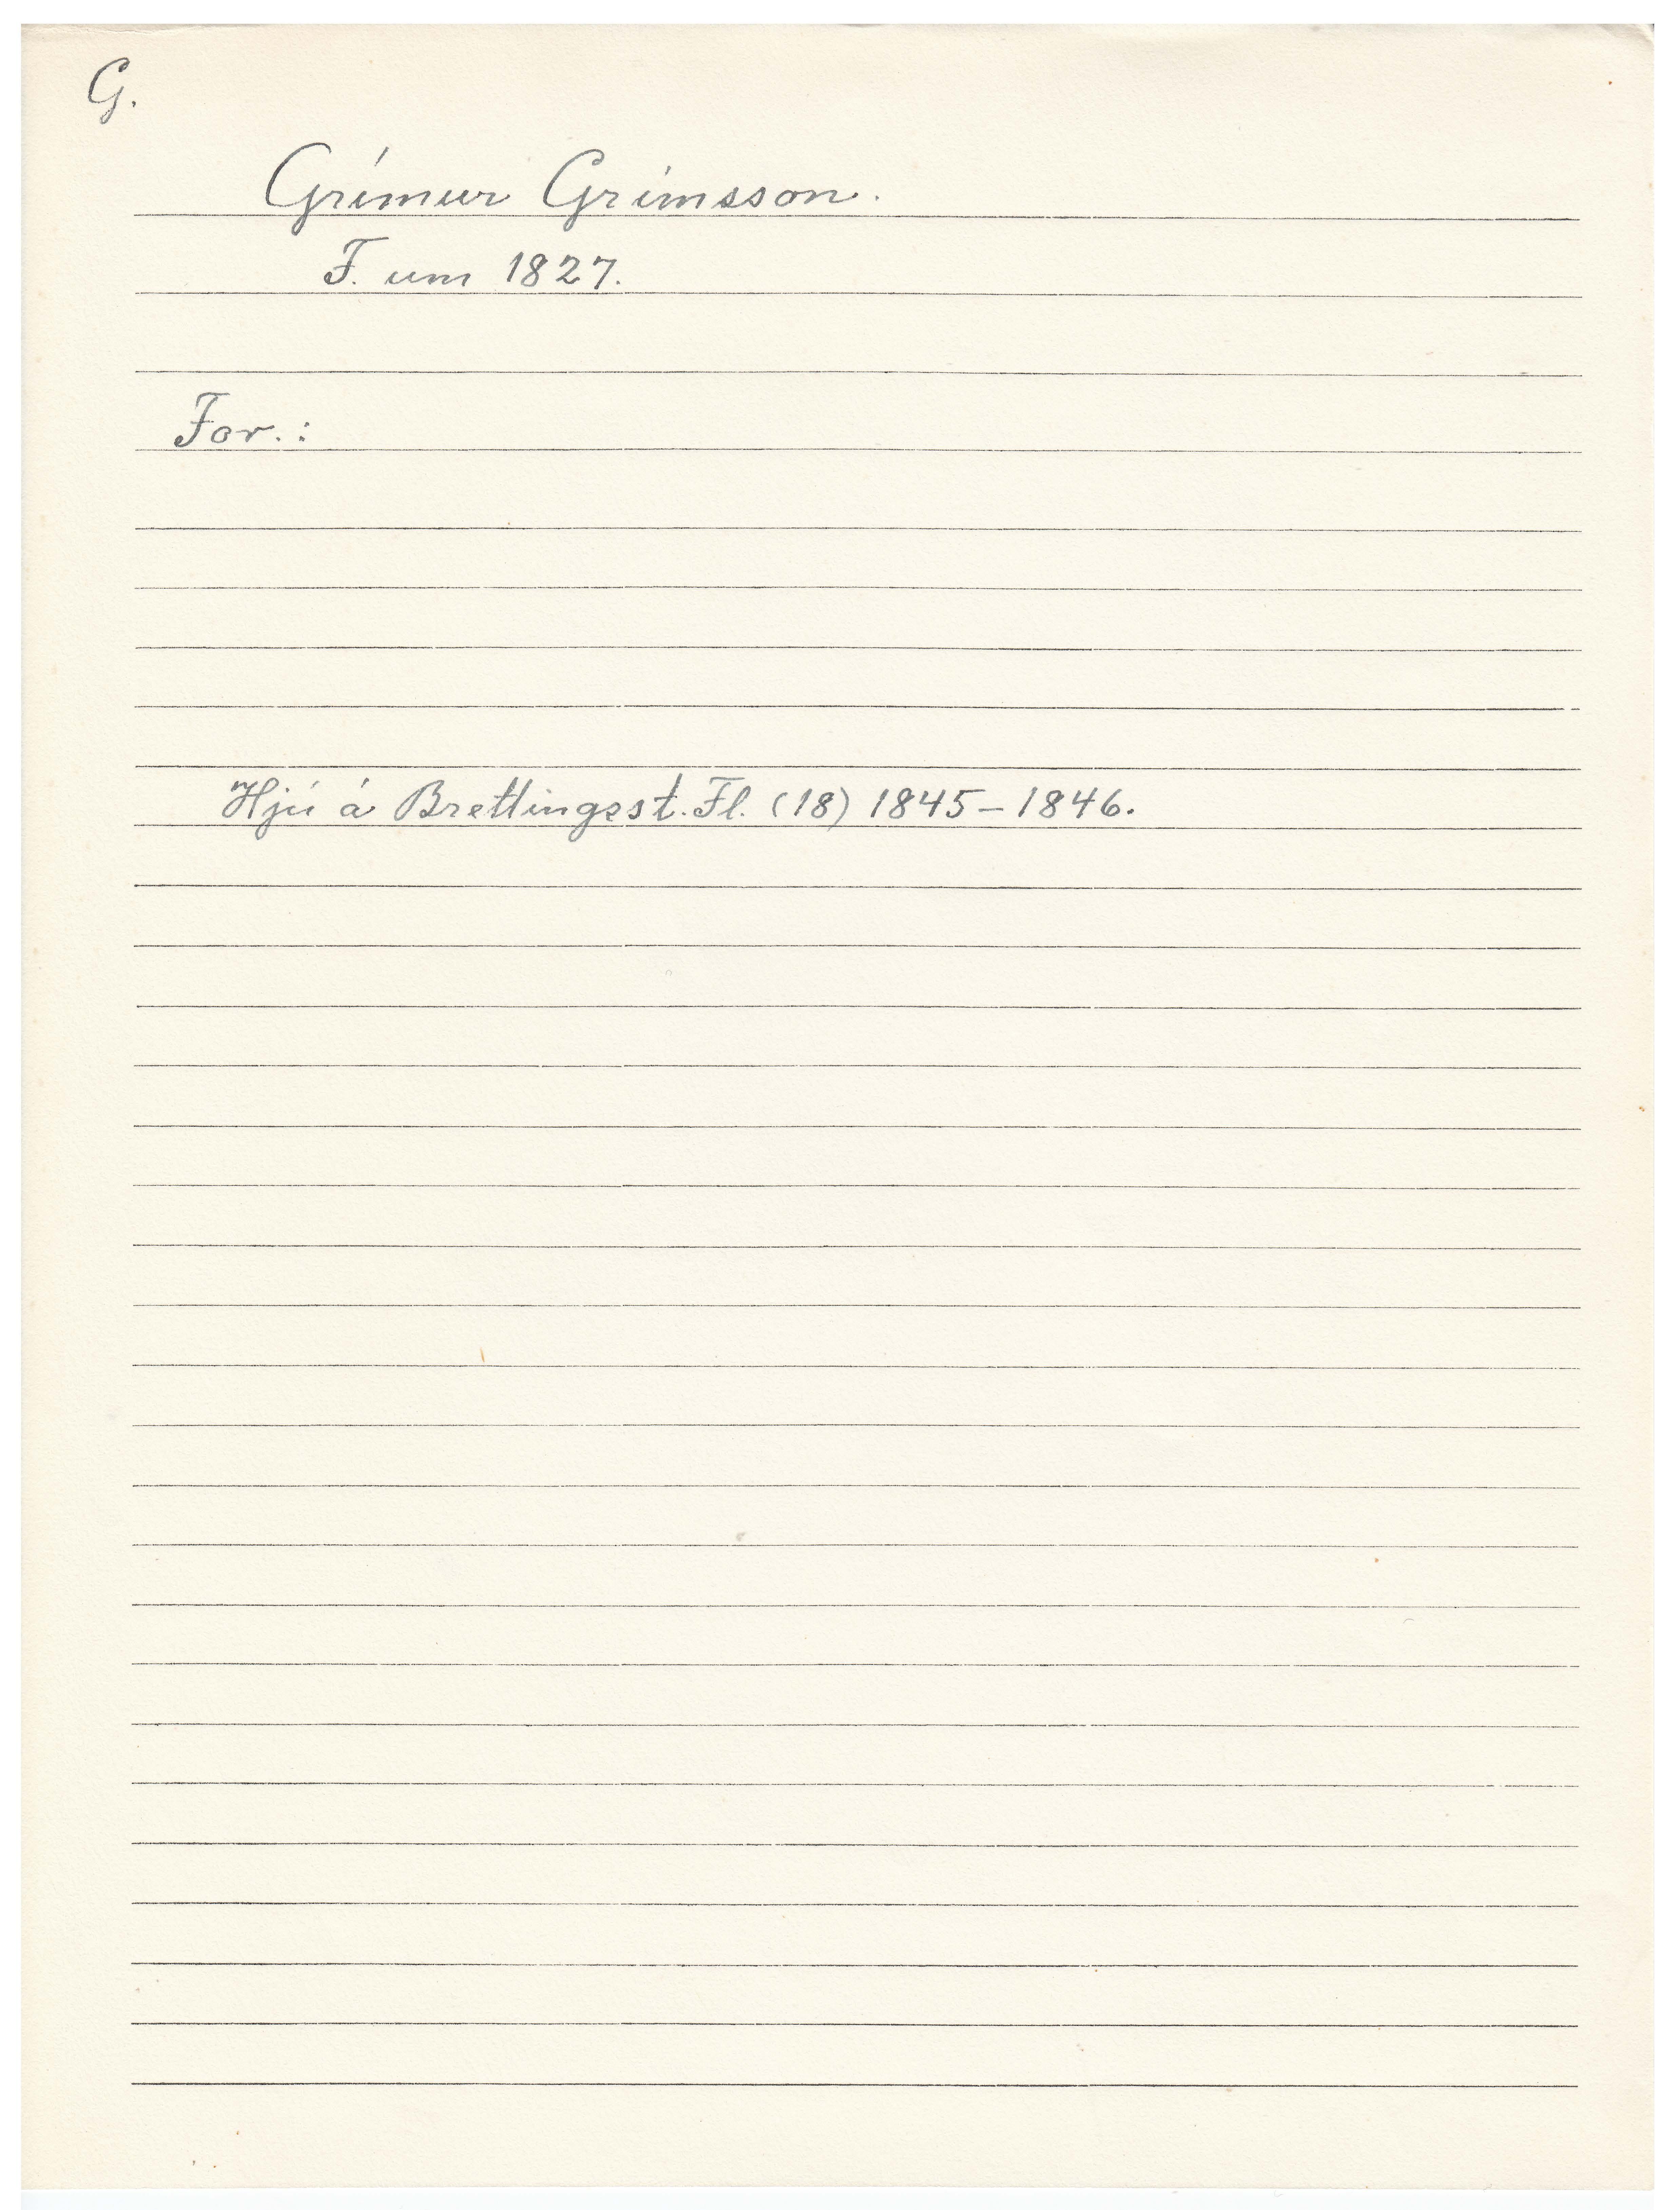 G.
Grímur Grímsson.
F. um 1827.
For.:
Hjú á Brettingsst. Fl. (18) 1845-1846.